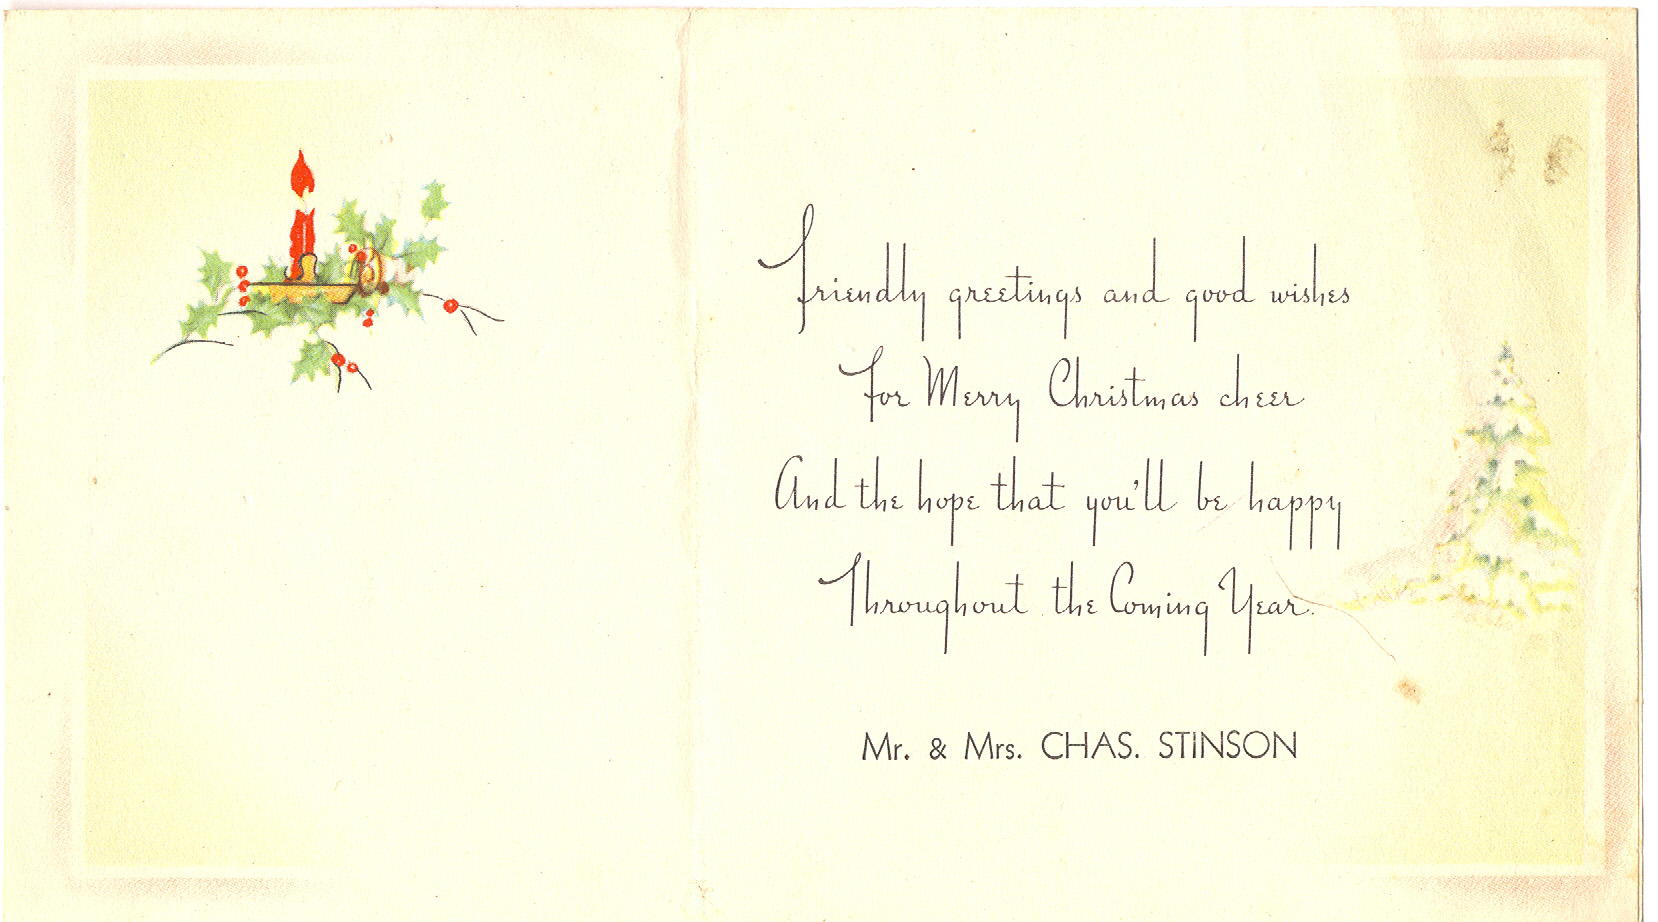 Friendly greetings and good wishes
For Merry Christmas cheer
And the hope that you'll be happy
Throughout the Coming Year.
Mr. & Mrs. CHAS. STINSON